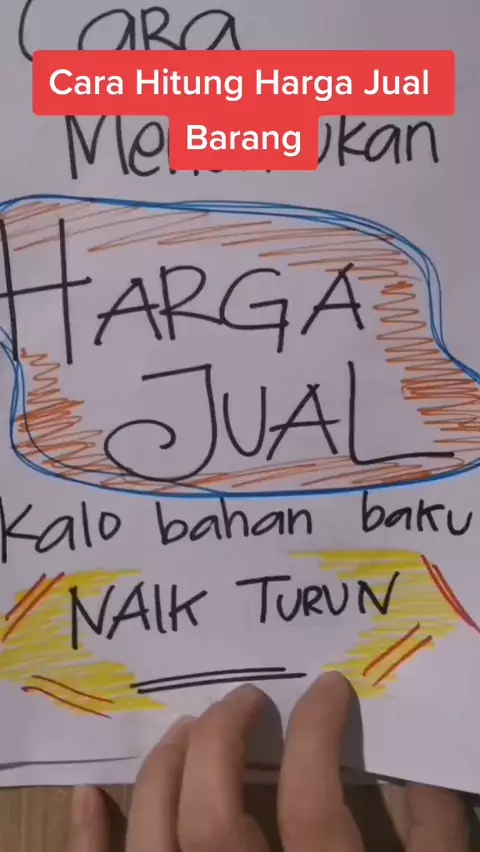 CARA
Cara Hitung Harga Jual
Barang
HARGA
JUAL
Kalo bahan baku
NAIK TURUN